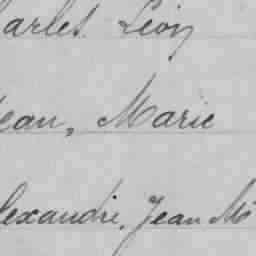 arles Léon
ean, Marie
lexandre, Jean M